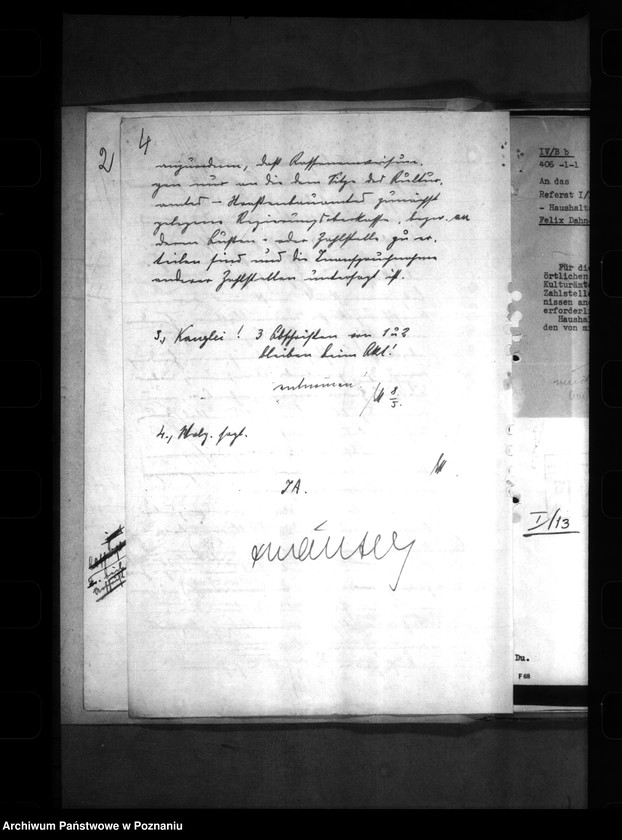 2
4
anzuordnen, daß Kassenanweisun-
gen nur an die dem Sitze des Kultur-
amtes - zunächst
gelegene Regierungsoberkasse, bezw. an
deren Kassen- oder Zahlstelle zu er-
teilen sind und die Inanspruchnahme
anderer Zahlstellen untersagt ist.
3., Kanzlei! 3 Abschriften von 1 u 2
bleiben beim Akt!
entnommen!
8/5.
4.,
IA.
IV/B b
406 -1-1
An das
Referat I/
- Haushalt
Felix Dahn
Für die
örtlichen
Kulturämt
Zahlstelle
nissen an
erforderli
Haushal
den von m
I/13
Du.
F 68
Archiwum Państwowe w Poznaniu